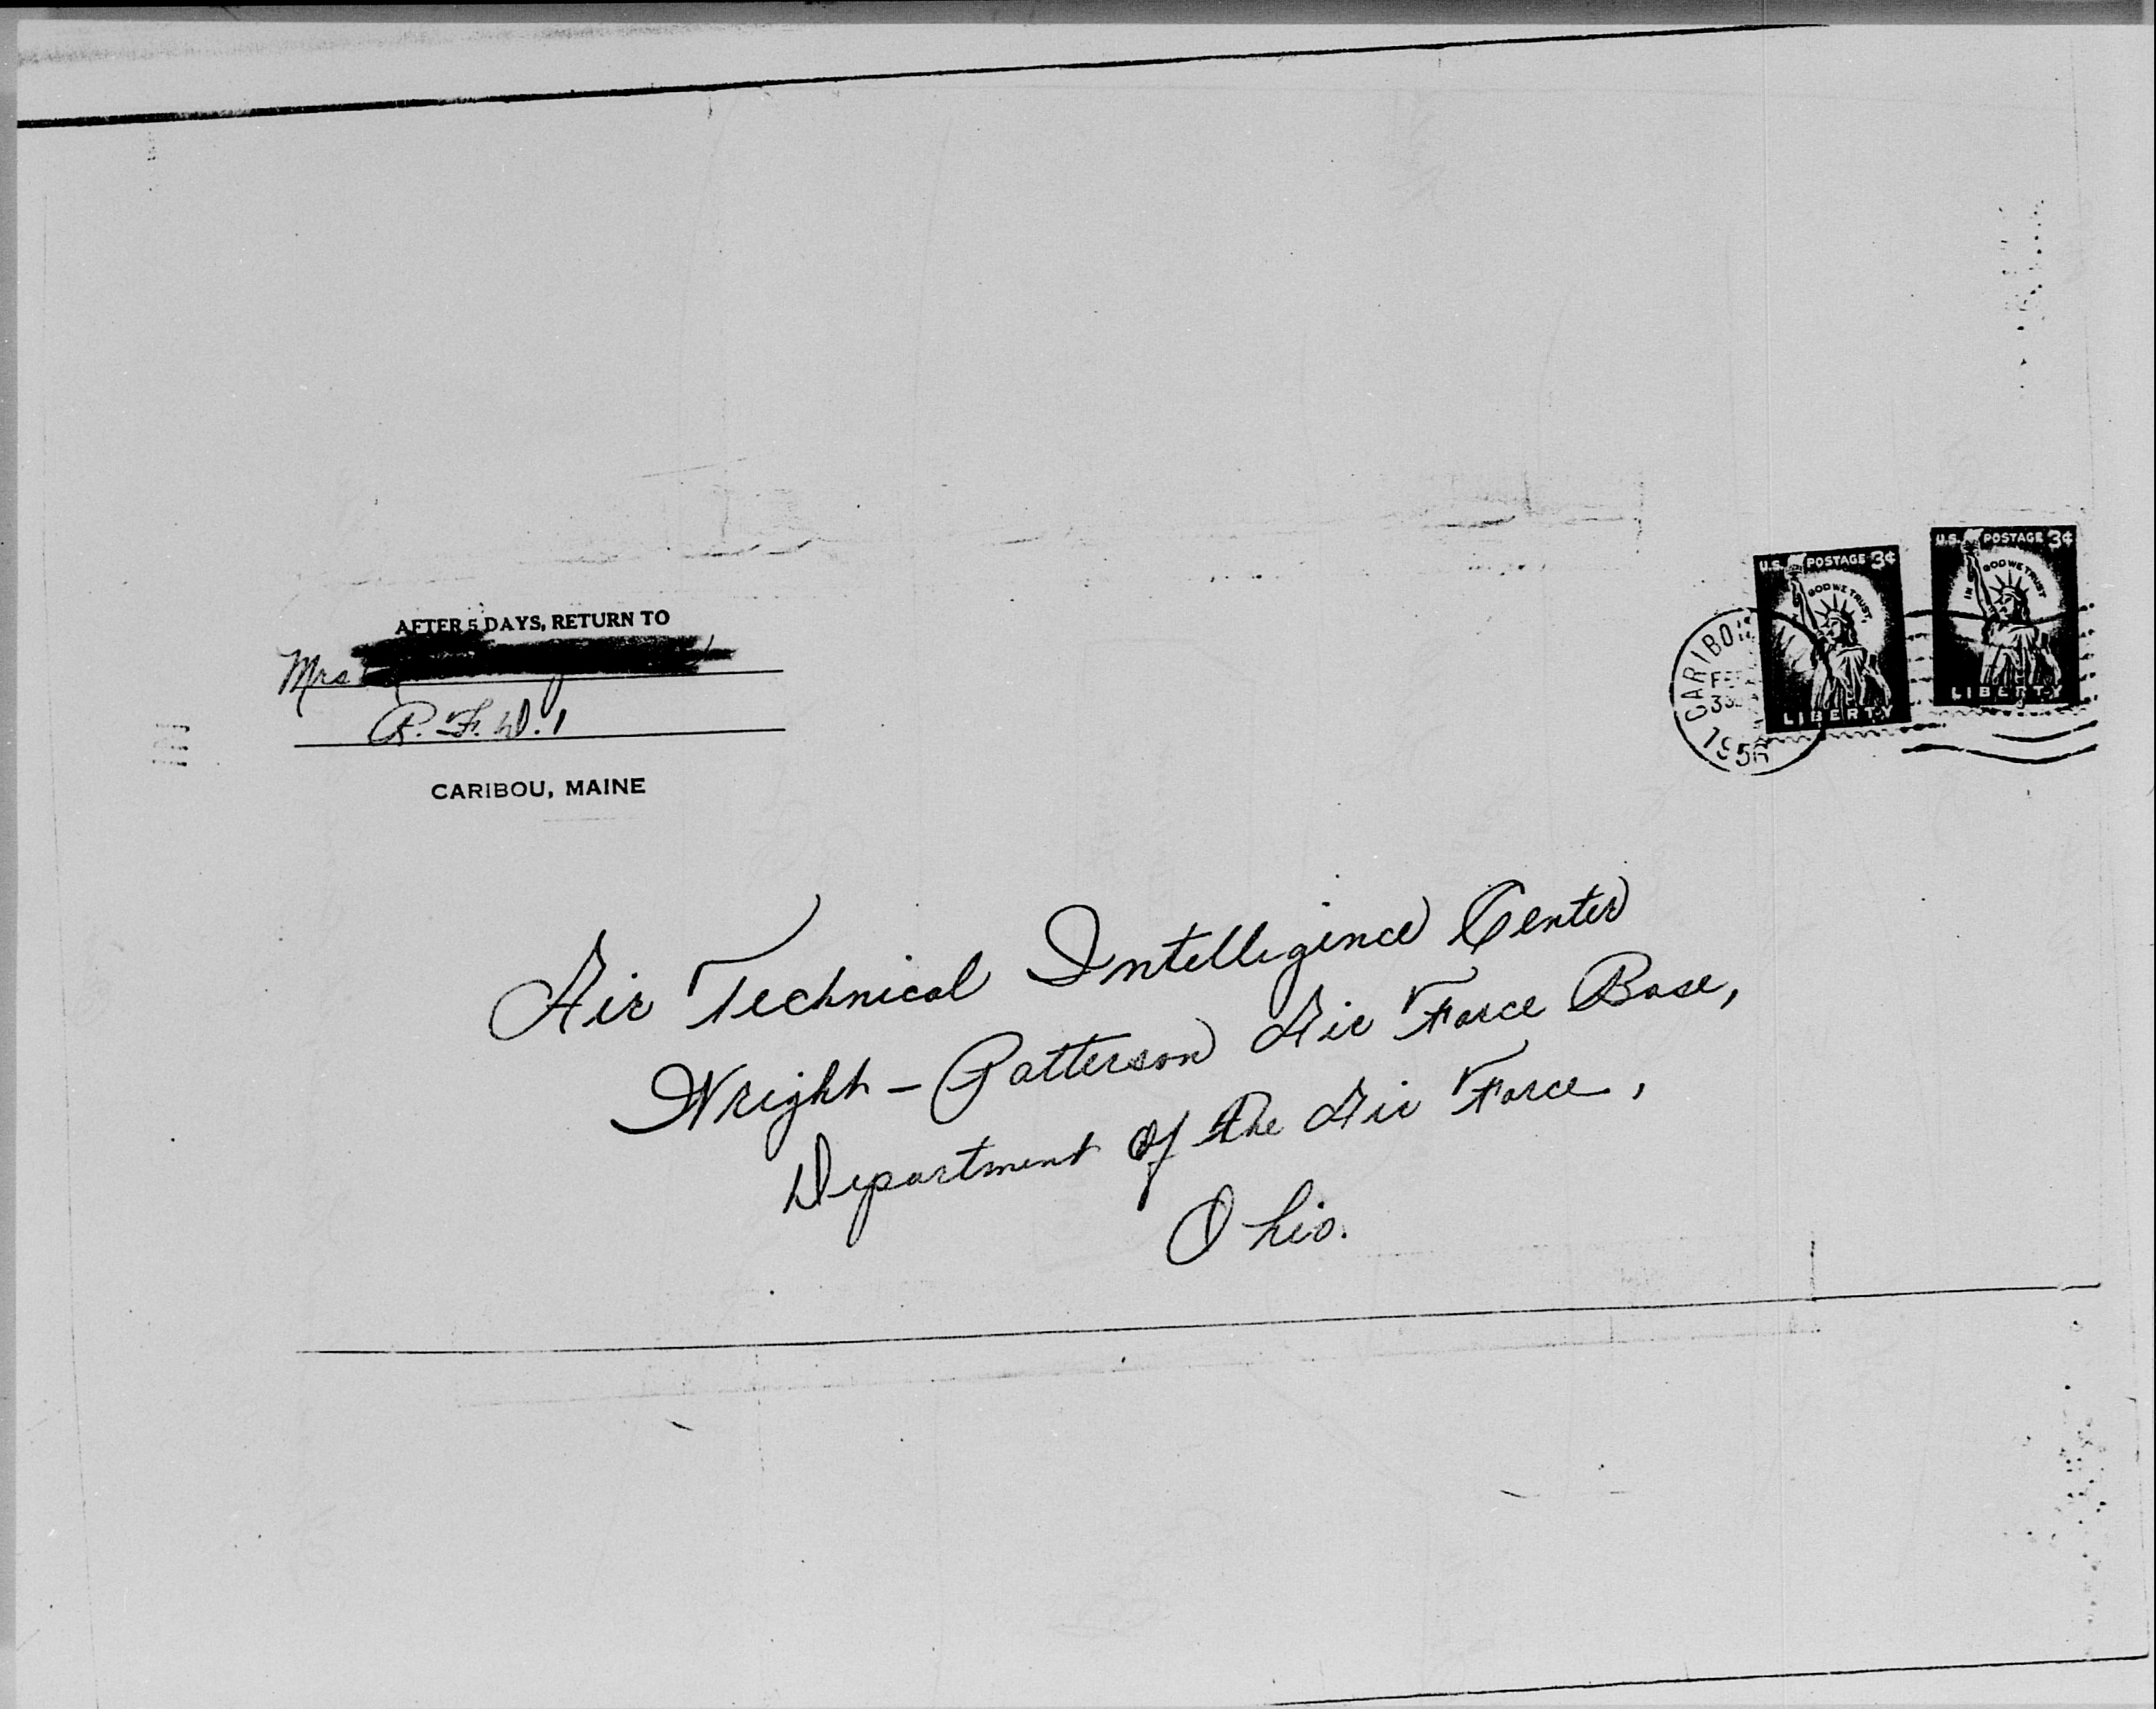 AFTER 5 DAYS, RETURN TO
Mrs
R. F. D. 1
CARIBOU, MAINE
U.S. POSTAGE 3¢
IN GOD WE TRUST
LIBERTY
U.S. POSTAGE 3¢
IN GOD WE TRUST
LIBERTY
CARIBOU
1956
Air Technical Intelligence Center
Wright - Patterson Air Force Base,
Department of the Air Force,
Ohio.